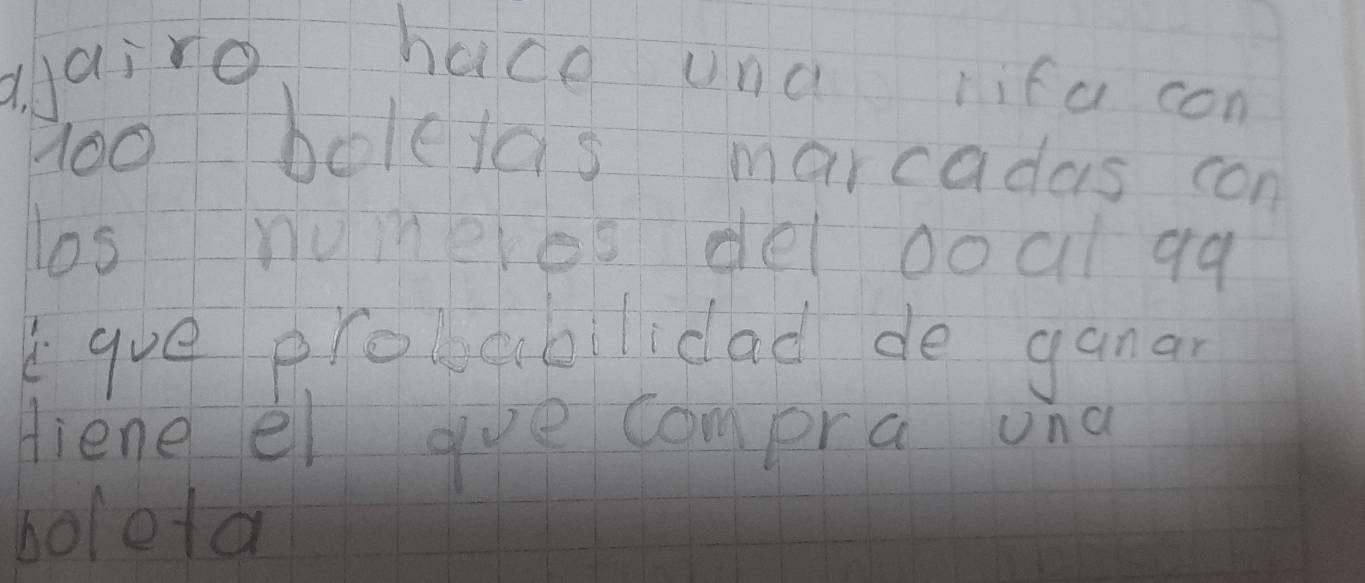 a. jairo hace una rifa con
100 boletas marcadas con
los numeros del 00 al 99
¿ que probabilidad de ganar
tiene el que compra una
boleta